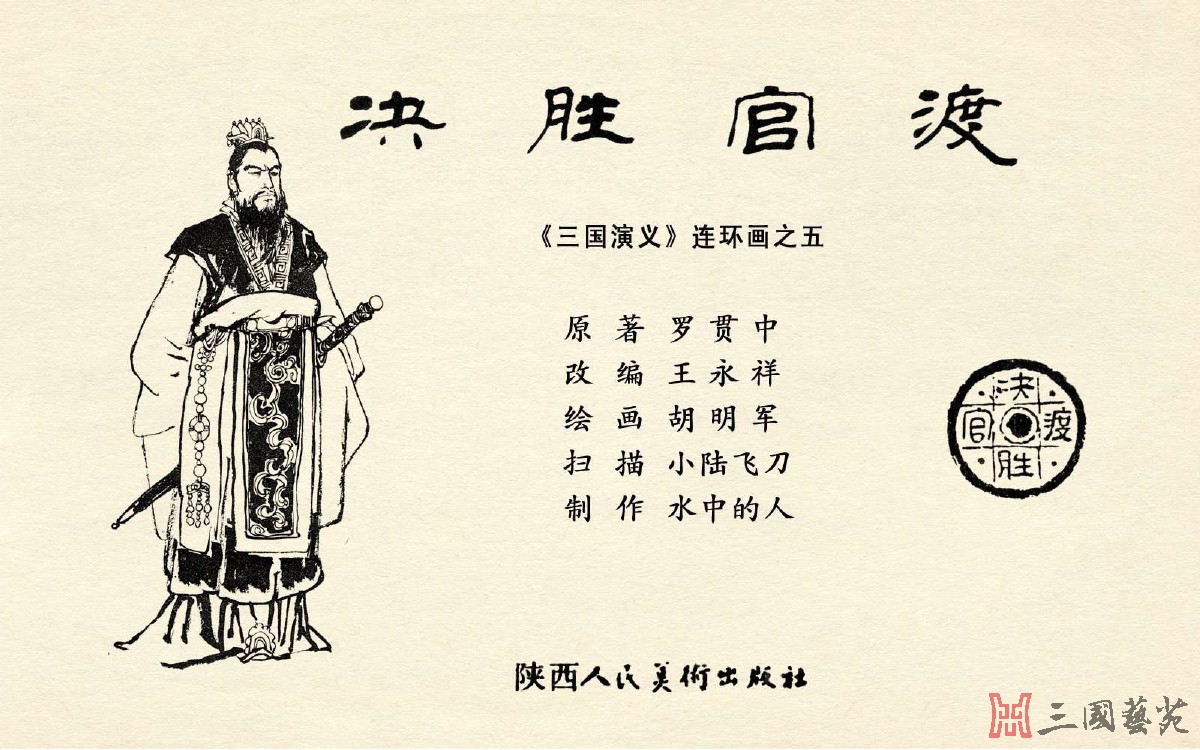 决胜官渡
《三国演义》连环画之五
原著 罗贯中
改编 王永祥
绘画 胡明军
扫描 小陆飞刀
制作 水中的人
决胜官渡
陕西人民美術出版社
三國藝苑